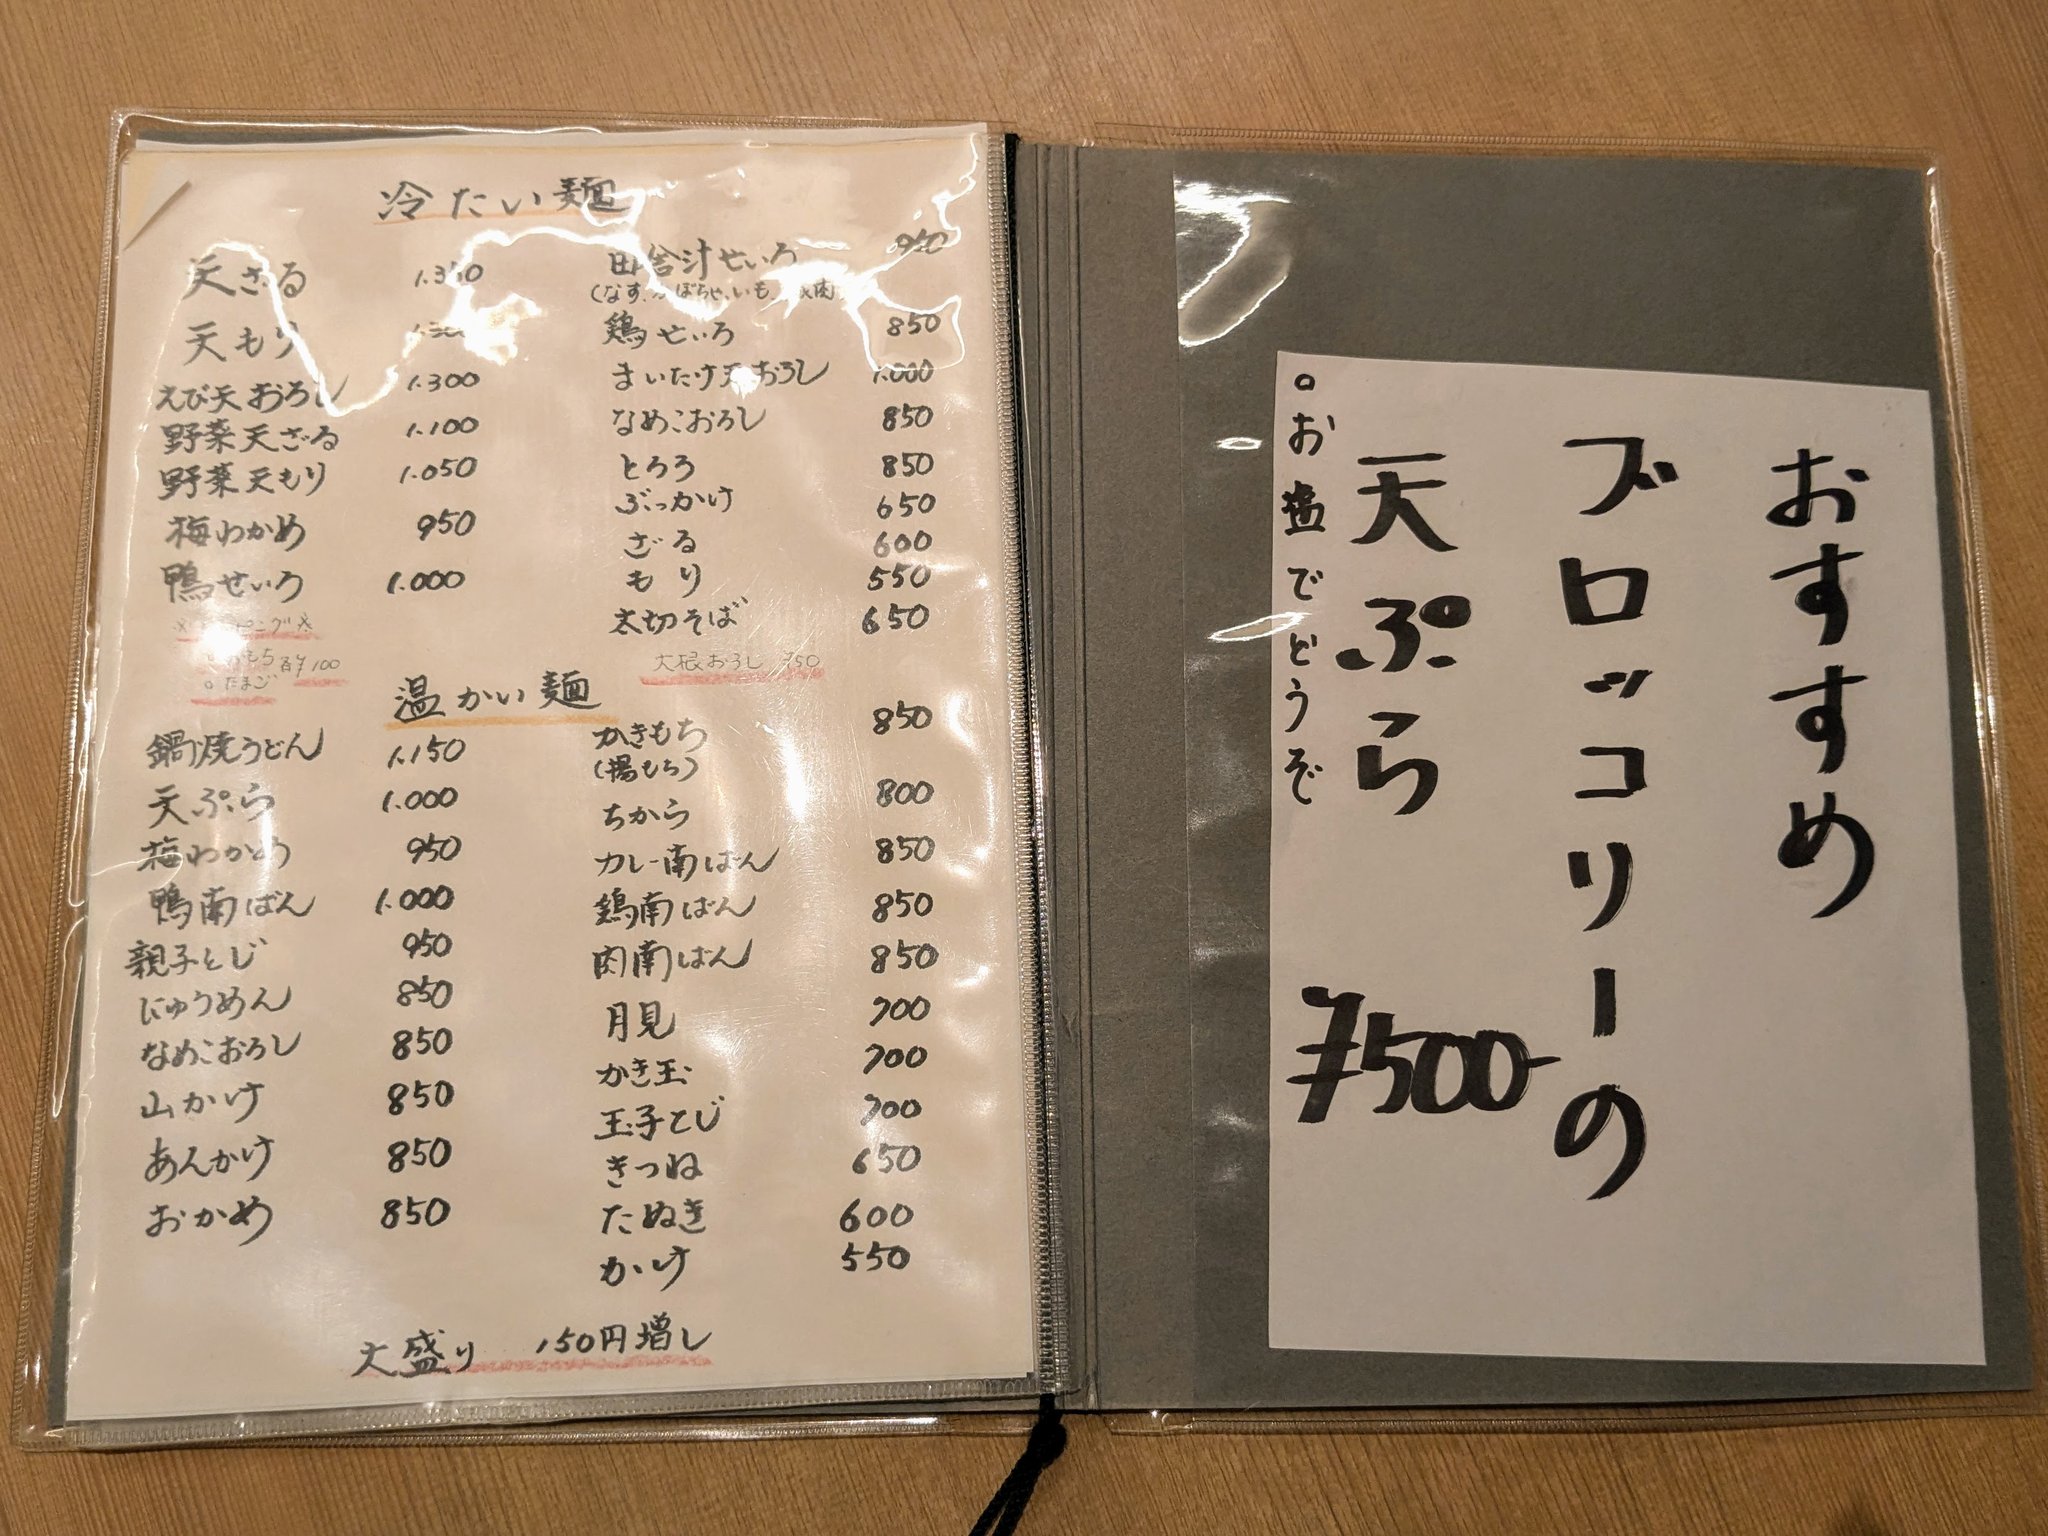 冷たい麺
天ざる 1.350
天もり
えび天おろし 1.300
野菜天ざる 1.100
野菜天もり 1.050
梅わかめ 950
鴨せいろ 1.000
田舎汁せいろ
(なす、かぼちゃ、いも、
鶏せいろ 850
まいたけ天おろし 1.000
なめこおろし 850
とろろ 850
ぶっかけ 650
ざる 600
もり 550
太切そば 650
ピング※
もち
たまご 各¥100
大根おろし ¥50
温かい麺
鍋焼うどん 1.150
天ぷら 1.000
梅わかめ 950
鴨南ばん 1.000
親子とじ 950
にゅうめん 850
なめこおろし 850
山かけ 850
あんかけ 850
おかめ 850
かきもち 850
(揚もち)
ちから 800
カレー南ばん 850
鶏南ばん 850
肉南ばん 850
月見 700
かき玉 700
玉子とじ 700
きつね 650
たぬき 600
かけ 550
大盛り 150円増し
おすすめ
ブロッコリーの
天ぷら
¥500-
。お塩でどうぞ